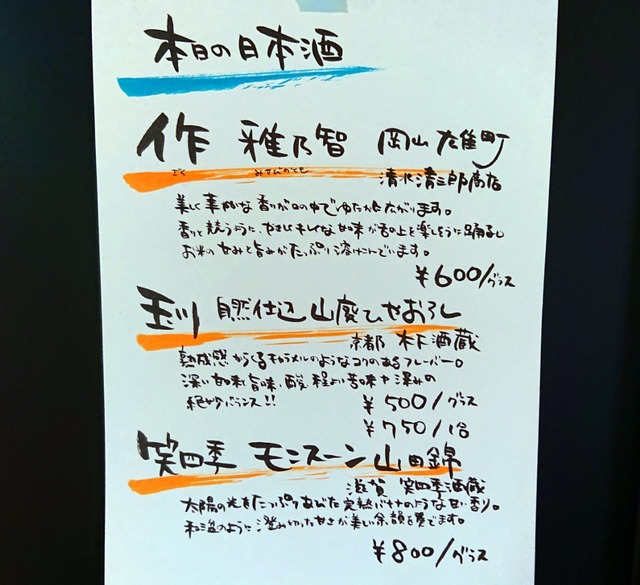 本日の日本酒
作 雅乃智 岡山雄町
ざく みやびのとも
清水清三郎商店
美しく華やかな香りが口の中でゆたかに広がります。
香りと競うように、やさしくキレイな甘味が舌の上を楽しそうに踊るし
お米の甘みと旨みがたっぷり溶けこんでいます。
¥600/グラス
玉川 自然仕込 山廃ひやおろし
京都 木下酒蔵
熟成感からくるキャラメルのようなコクのあるフレーバー。
深い甘味と旨味、酸、程よい苦味や渋みの
絶妙バランス!!
¥500/グラス
¥750/1合
笑四季 モンスーン山田錦
滋賀 笑四季酒蔵
太陽の光をたっぷりあびた完熟バナナのような甘い香り。
和三盆のように澄み切った甘さが美しい余韻を奏でます。
¥800/グラス